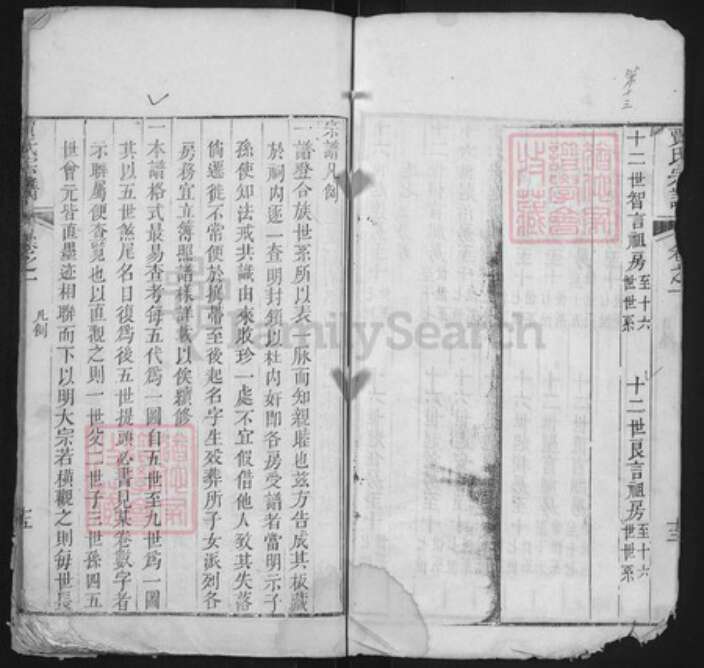 第十三
賈氏宗譜
卷之一
十三
十二世智言祖房至十六世世系
十二世良言祖房至十六世世系
宗譜凡例
一譜登合族世系所以表一脈而知親睦也茲方告成其板藏
於祠内逐一查明封鎖以杜内奸即各房受譜者當明示子
孫使知法戒共識由來敢珍一處不宜假借他人致其失落
倘遷徙不常便於攜帶至後起名字生歿葬所子女派列各
房務宜立簿照譜樣詳載以俟續修
一本譜格式最易查考每五代為一圖自五世至九世為一圖
其以五世煞尾名目復為後五世提頭必書見某卷數字者
示聯屬便查覽也以直觀之則一世父二世子三世孫四五
世會元皆直墨迹相聯而下以明大宗若橫觀之則每世長
凡例
卷之一
FamilySearch